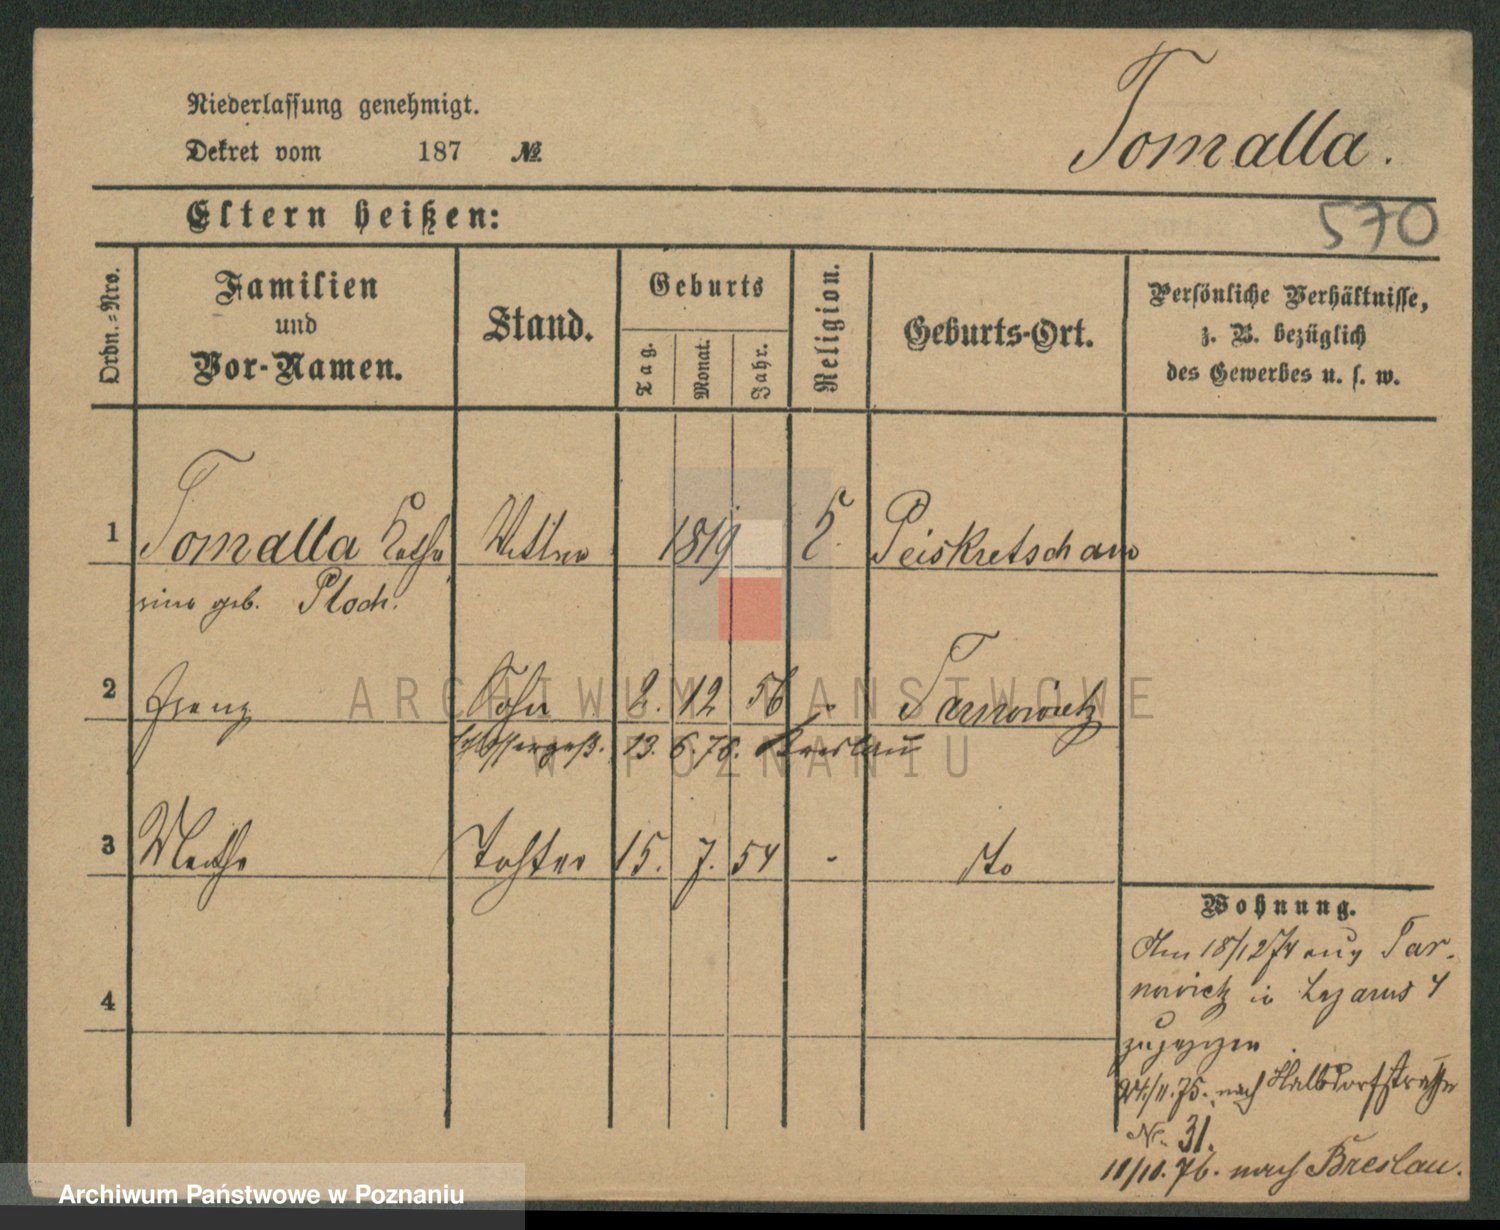 Niederlassung genehmigt.
Dekret vom 187 №
Tomalla.
Eltern heißen:
570
Ordn.-Nro.
Familien
und
Vor-Namen.
Stand.
Geburts
Tag.
Monat.
Jahr.
Religion.
Geburts-Ort.
Persönliche Verhältnisse,
z. B. bezüglich
des Gewerbes u. s. w.
1 Tomalla Katha 1819 K. Peiskretscham
rina geb. Ploch.
2 Franz Sohn 2. 12 56 " Tarnowietz
Schlossergeß. 13. 6. 76. Breslau
3 Marthe Tochter 15. 7. 54 - dto
4
Wohnung.
Am 18/12 74 aus Tar-
nowietz in Lazarus 4
zugezogen
24./11. 75. nach Halbdorfstrasse
No. 31.
11/10. 76. nach Breslau.
ARCHIWUM PAŃSTWOWE
W POZNANIU
Archiwum Państwowe w Poznaniu